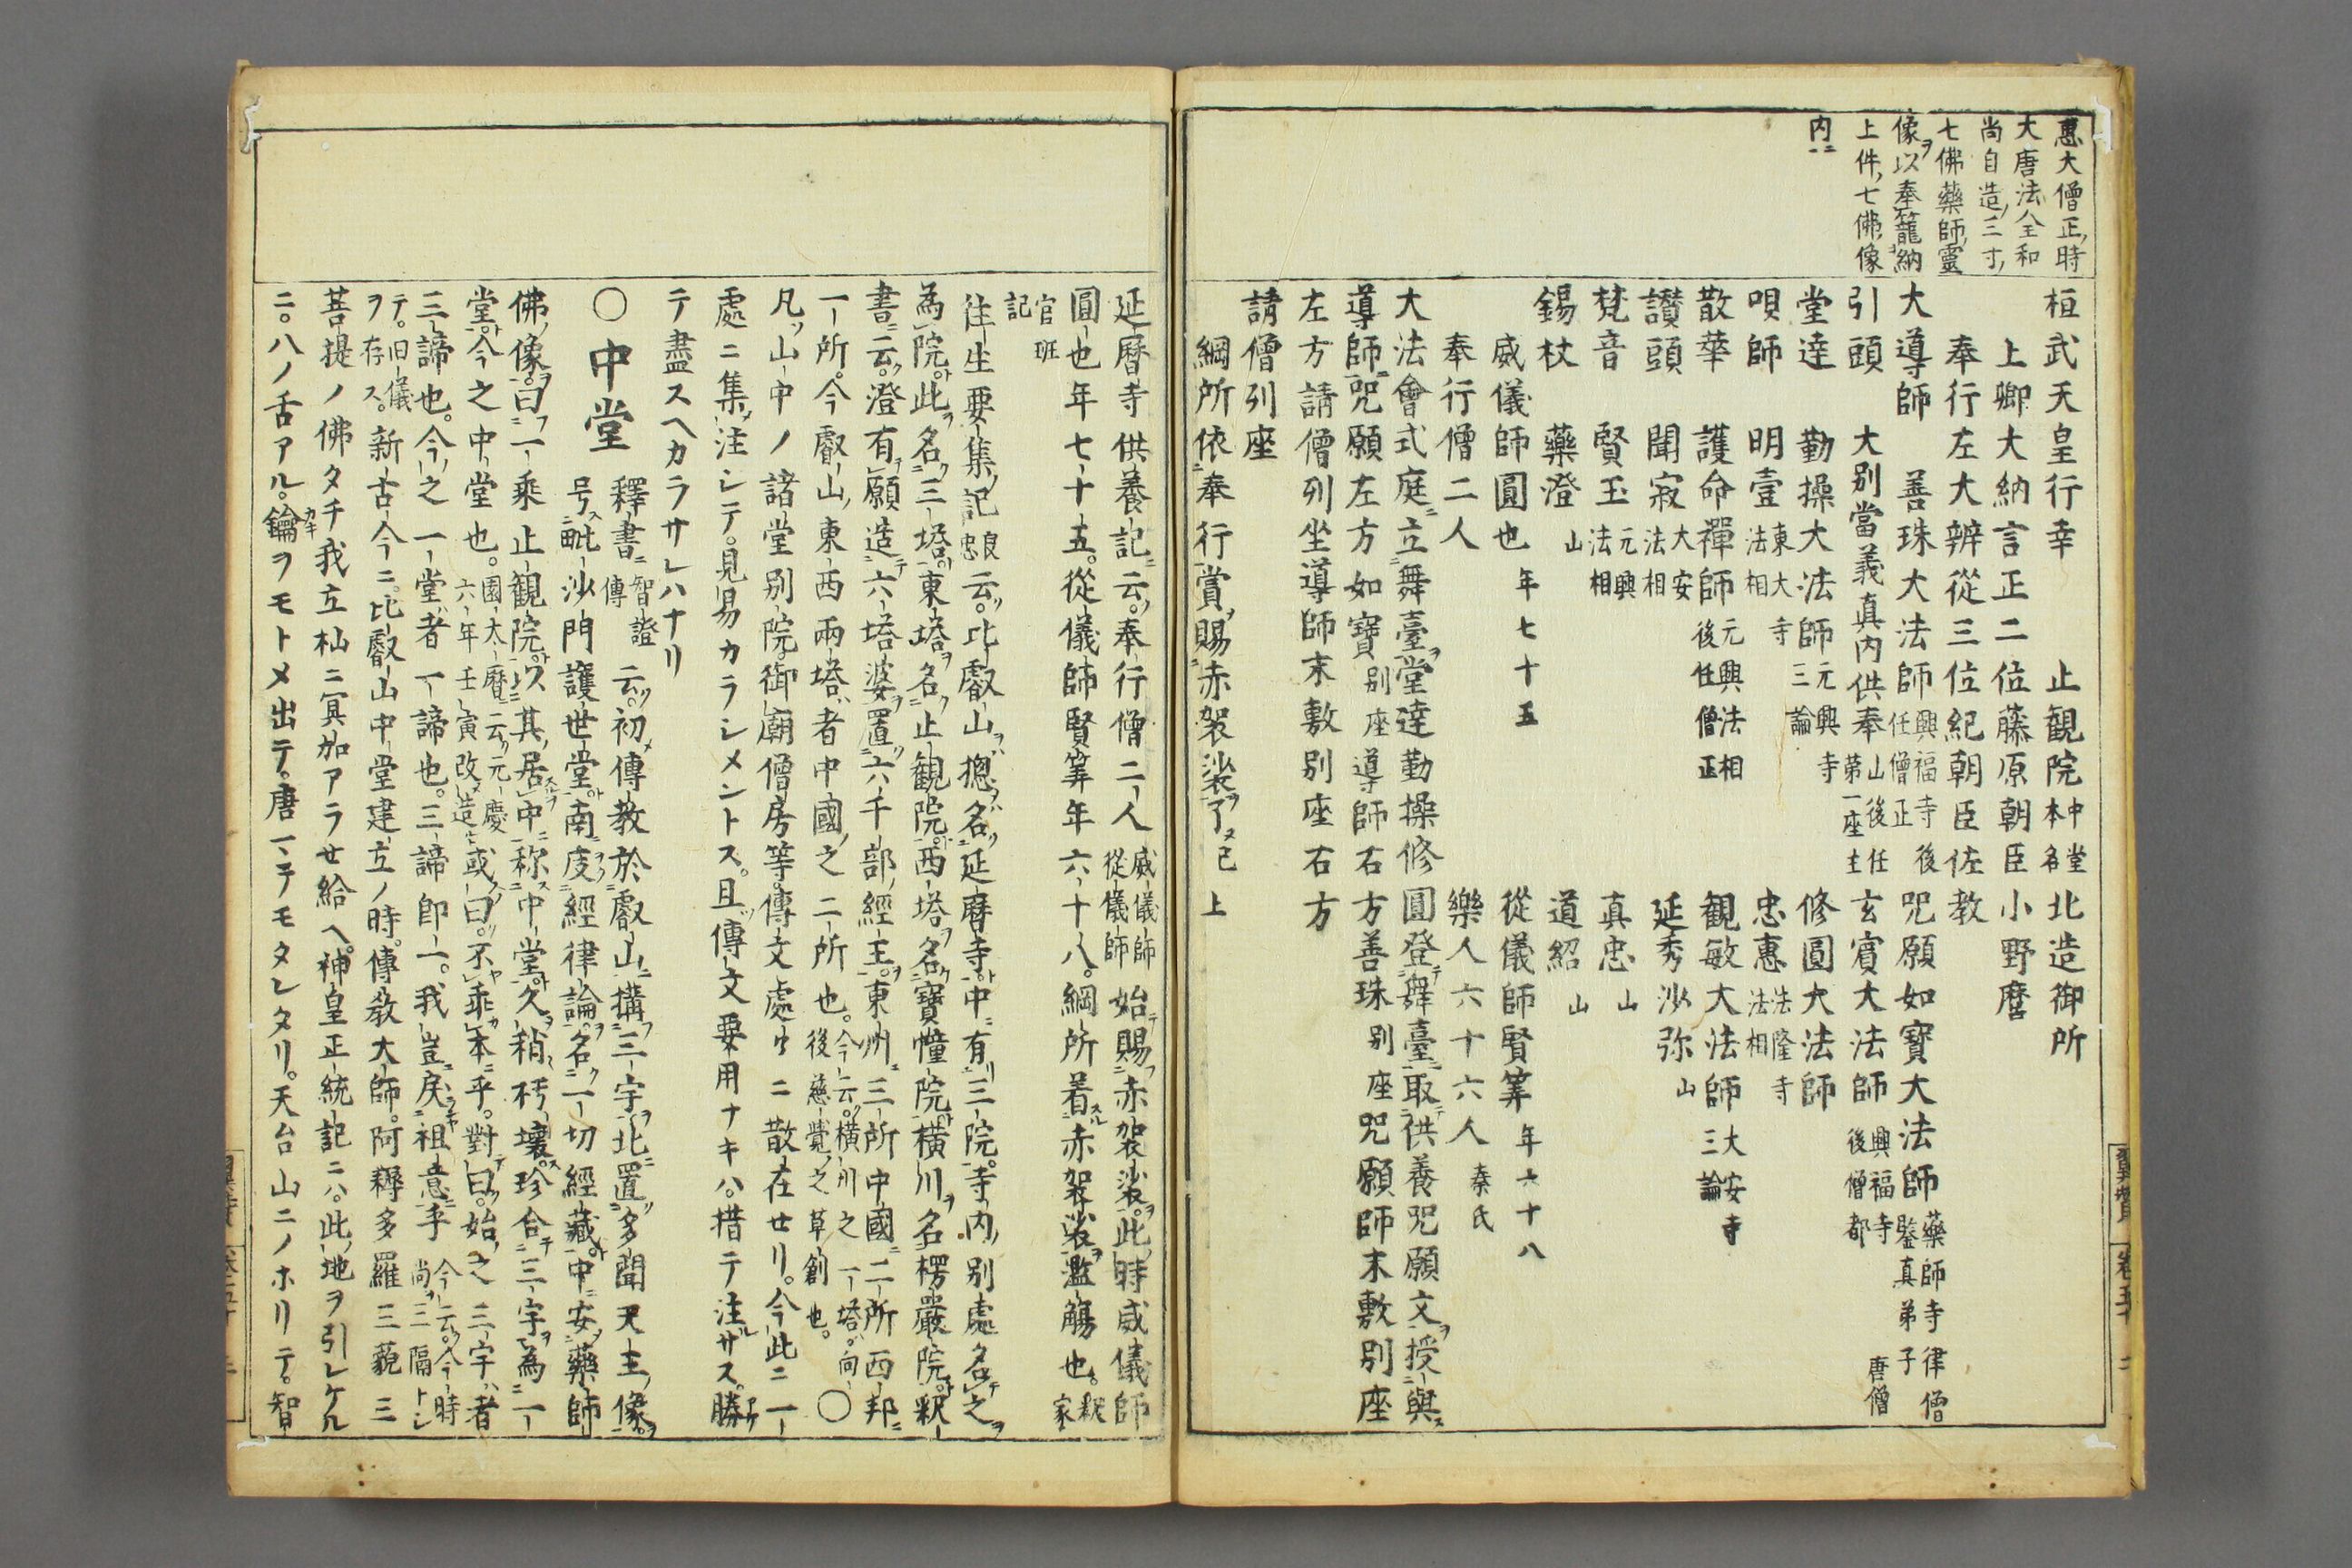 惠大僧正ノ時
大唐法全和
尚自造ノ三寸ノ
七佛藥師ノ靈
像ヲ以奉籠納
上件ノ七佛ノ像ノ
内ニ
桓武天皇行幸　止観院中堂本名　北造御所
上卿大納言正二位藤原朝臣小野麿
奉行左大辨從三位紀朝臣佐教
大導師　善珠大法師興福寺後任僧正　咒願如寶大法師藥師寺律僧鑒真弟子唐僧
引頭　大別當義真内供奉山後任第一座主　玄賓大法師興福寺後僧都
堂達　勤操大法師元興寺三論　修圓大法師
唄師　明壹東大寺法相　忠惠法隆寺法相
散華　護命禪師元興法相後任僧正　観敏大法師大安寺三論
讃頭　聞寂大安法相　延秀沙弥山
梵音　賢玉元興法相　真忠山
錫杖　藥澄山　道紹山
威儀師圓也年七十五　從儀師賢筭年六十八
奉行僧二人　樂人六十六人秦氏
大法會式庭ニ立舞臺ヲ堂達勤操修圓登テ舞臺ニ取テ供養咒願文ヲ授與ス
導師ニ咒願左方如寶別座導師石方善珠別座咒願師末敷別座
左方請僧列坐導師末敷別座石方
請僧列座
綱所依奉行賞ノ賜赤袈裟ヲ了ヌ已上
延暦寺供養記ニ云ク。奉行僧二人威儀師從儀師　始テ賜フ赤袈裟ヲ。此ノ時威儀師
圓也年七十五。從儀師賢筭年六十八。綱所着スル赤袈裟ヲ濫觴也。釈家
官班記
往生要集ノ記良忠云ク。比叡山ヲハ摠名ク延暦寺ト。中ニ有リ三院。寺内ノ別處名テ之ヲ
為院ト。此ヲ名ク三塔ト。東塔ヲ名ク止観院ト。西塔ヲ名ク寶幢院ト。横川ヲ名楞嚴院ト。釈
書ニ云ク。澄有テ願造テ六塔婆ヲ置ク六千部ノ經王ヲ。東州ニ三所中國ニ二所西邦ニ
一所。今叡山ノ東西兩塔ハ者中國ノ之二所也。今云ク横川之一塔ハ向後慈覺ノ之草創也。〇
凡ソ山中ノ諸堂別院。御廟僧房等。傳文處々ニ散在セリ。今此ニ一
處ニ集メ注シテ。見易カラシメントス。且ツ傳文要用ナキハ。措テ注サス。勝テ
テ盡スヘカラサレハナリ
〇中堂　釋書ニ智證傳　云ク。初メ傳教於叡山ニ構フ三宇ヲ。北ニ置多聞天王ノ像ヲ。
号ス毗沙門護世堂ト。南ニ庋經律論ヲ。名ク一切經藏ト。中ニ安ス藥師
佛ノ像ヲ。曰フ一乘止観院ト。以其ノ居中ニ称ス中堂ト。久ヲ稍朽壞ス。珍合テ三宇ヲ為一
堂ト。今之中堂也。園太暦ニ云ク元慶六年壬寅改メ造ル　或ノ曰ク。不乖本ニ乎。對曰ク。始ノ之三宇ハ者
三諦也。今ノ之一堂ハ者一諦也。三諦即一。我豈戻ランヤ祖意ニ乎今云ク今時尚ヲ三隔トシ
テ。旧儀ヲ存ス。新古今ニ。比叡山中堂建立ノ時。傳教大師。阿耨多羅三藐三
菩提ノ佛タチ我立杣ニ冥加アラセ給ヘ。神皇正統記ニハ。此ノ地ヲ引レケル
ニ。八ノ舌アル。鑰ヲモトメ出テ。唐一テモタレタリ。天台山ニノホリテ。智